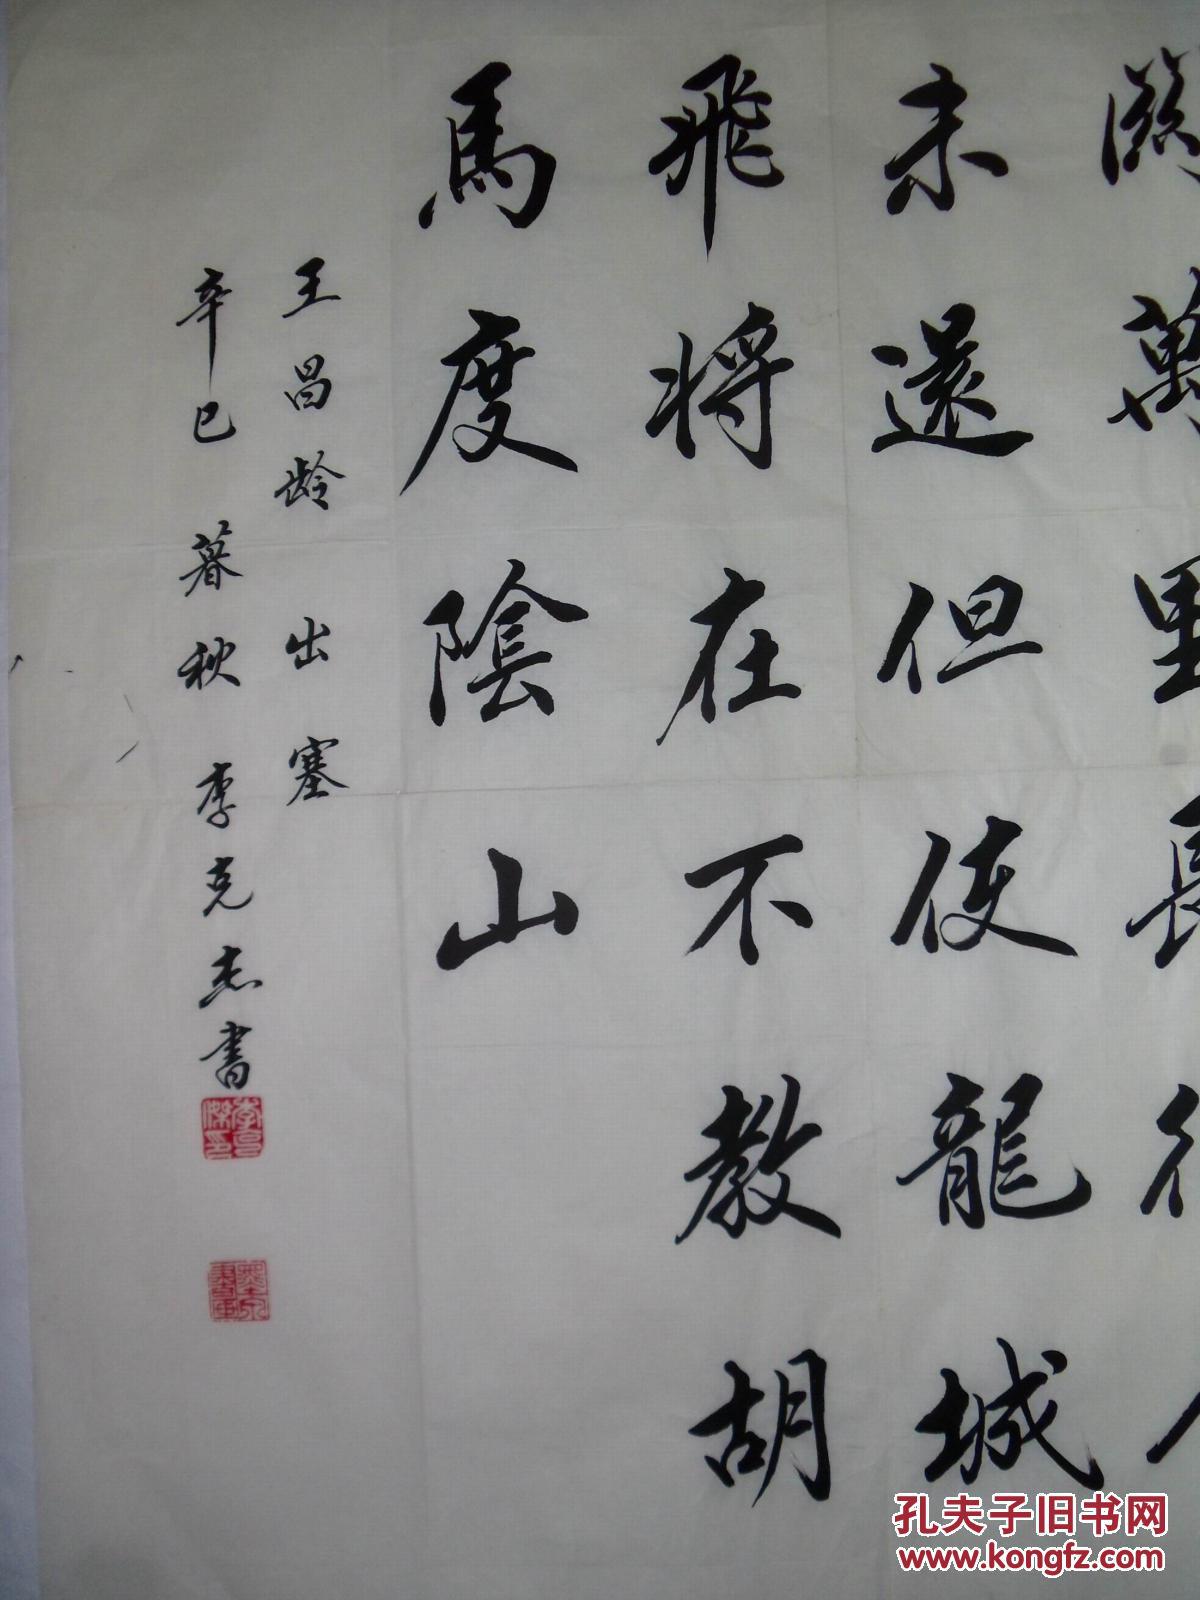 萬里長征人
未還但使龍城
飛将在不教胡
馬度陰山
王昌龄 出塞
辛巳 暮秋 李克杰書
孔夫子旧书网
www.kongfz.com